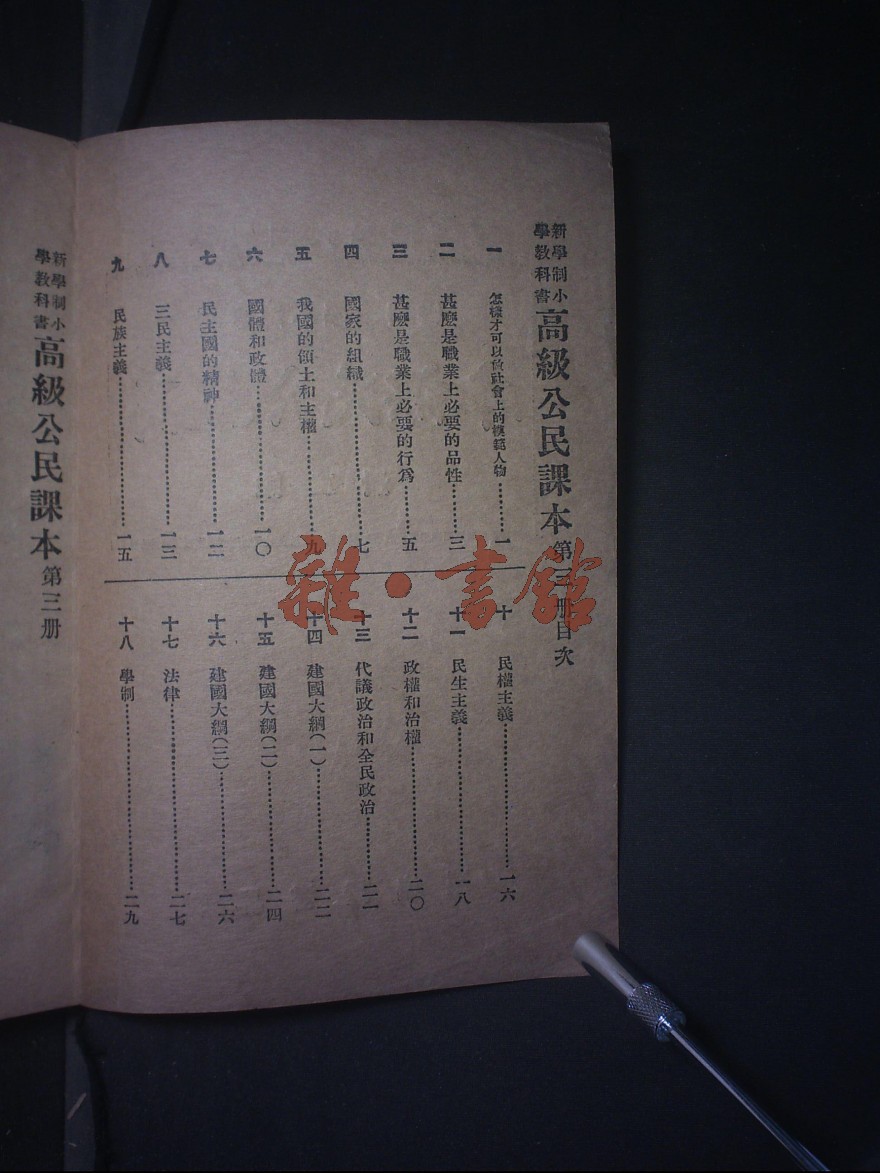 新學制小
學教科書
高級公民課本第三册目次
一 怎樣才可以做社會上的模範人物………一
二 甚麽是職業上必要的品性………三
三 甚麽是職業上必要的行爲………五
四 國家的組織………七
五 我國的領土和主權………九
六 國體和政體………一〇
七 民主國的精神………一二
八 三民主義………一三
九 民族主義………一五
十 民權主義………一六
十一 民生主義………一八
十二 政權和治權………二〇
十三 代議政治和全民政治………二一
十四 建國大綱(一)………二二
十五 建國大綱(二)………二四
十六 建國大綱(三)………二六
十七 法律………二七
十八 學制………二九
新學制小
學教科書
高級公民課本 第三册
雜·書館